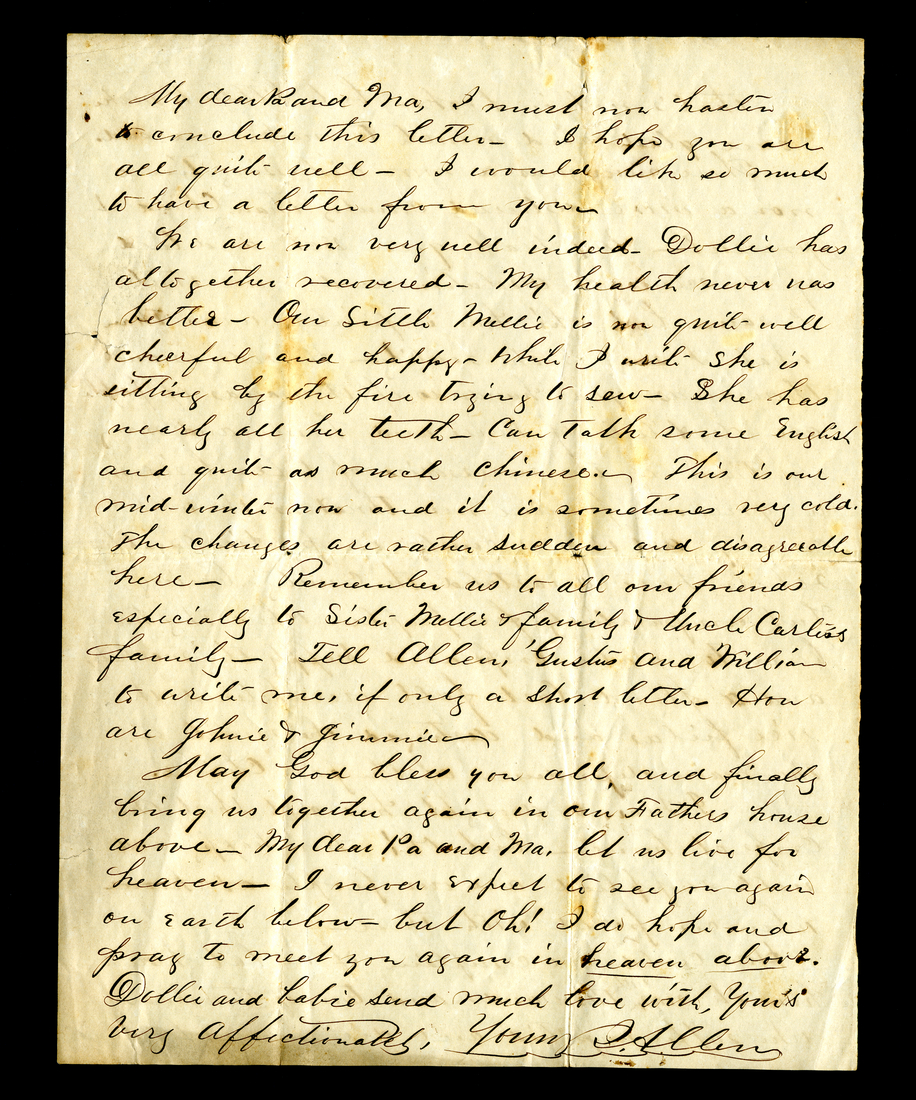 My dear Pa and Ma, I must now hasten
to conclude this letter – I hope you are
all quite well – I would like so much
to have a letter from you –
We are now very well indeed – Dollie has
altogether recovered – My health never was
better – Our Little Mellie is now quite well
cheerful and happy – While I write she is
sitting by the fire trying to sew – She has
nearly all her teeth – Can talk some English
and quite as much Chinese. – This is our
mid-winter now and it is sometimes very cold.
The changes are rather sudden and disagreeable
here – Remember us to all our friends
especially to Sister Mellie & family & Uncle Carliss
family – Tell Allen, Gustus and William
to write me, if only a short letter – How
are Johnie & Jimmie –
May God bless you all, and finally
bring us together again in our Fathers house
above – My dear Pa and Ma, let us live for
heaven – I never expect to see you again
on earth below – but Oh! I do hope and
pray to meet you again in heaven above.
Dollie and babie send much love with, Yours
very affectionately, Young J. Allen